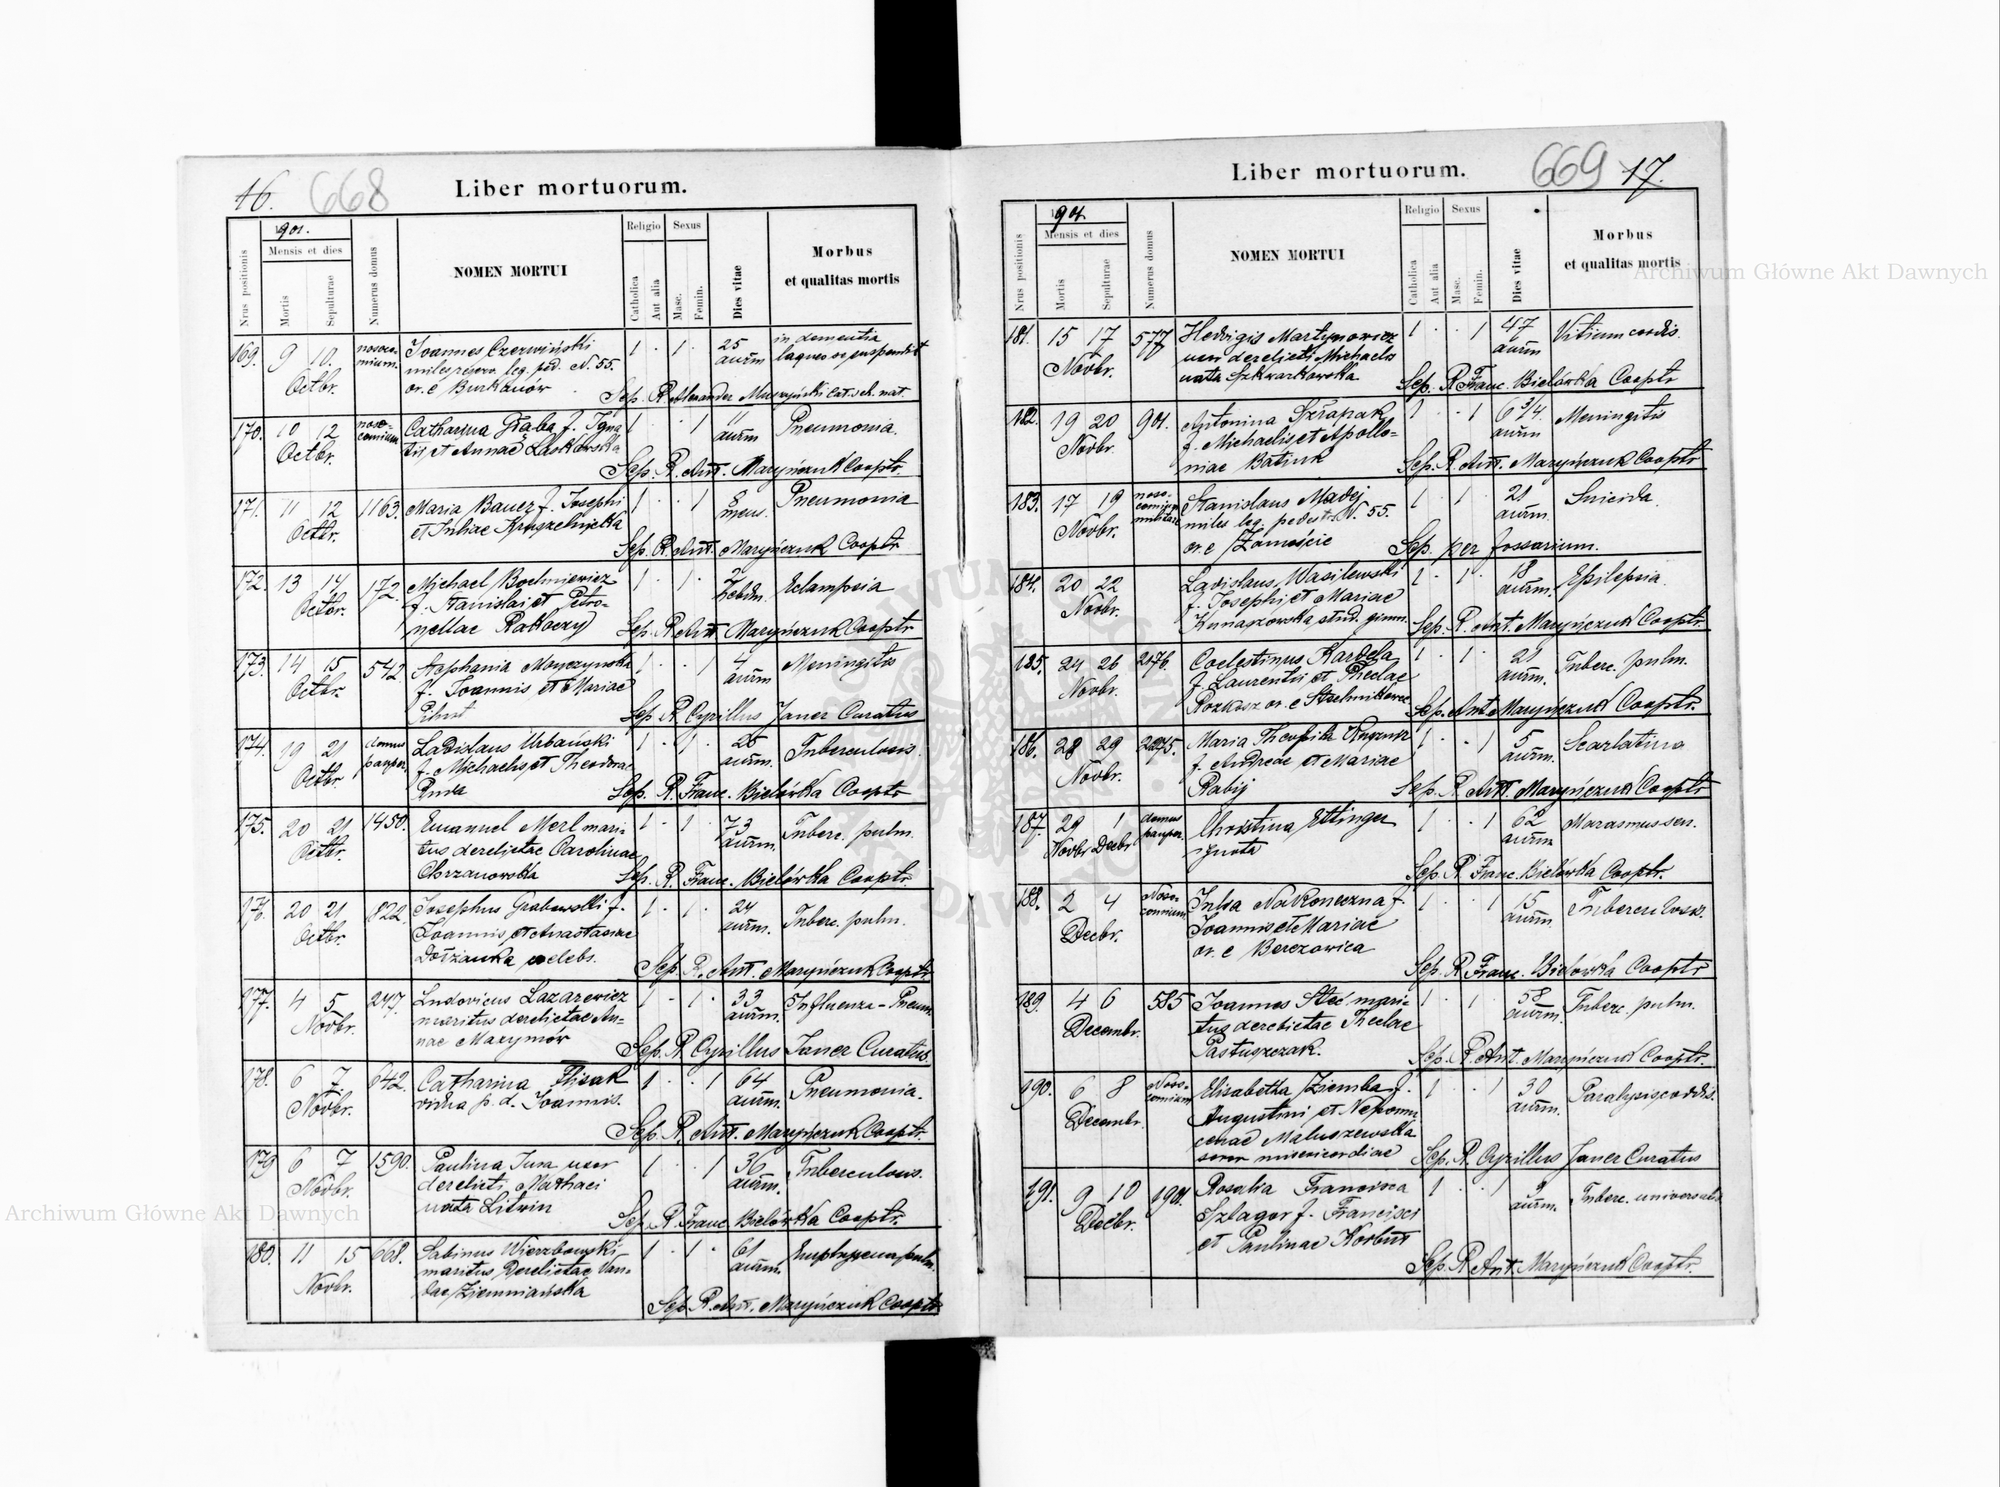 16. 668
Liber mortuorum.
Nrus positionis
901.
Mensis et dies
Mortis
Sepulturae
Numerus domus
NOMEN MORTUI
Religio
Catholica
Aut alia
Sexus
Masc.
Femin.
Dies vitae
Morbus
et qualitas mortis
169. 9 10. nosoco- Joannes Czerwiński 1 · 1 · 25 in dementia
Octbr. mium. miles reserv. leg. ped. N. 55. annm laqueo se suspendit
or. e Burkanów Sep. R. Alexander Muszyński cat. sch. nat.
170. 10 12 noso- Catharina Graba f. Igna 1 · · 1 11 Pneumonia.
Octbr. comium tii et Annae Laskowska annm
Sep. R. Ant. Maryńczuk Cooptr
171. 11 12 1163. Maria Bauer f. Josephi 1 · · 1 8 Pneumonia
Octbr. et Juliae Kruszelnicka mens.
Sep. R. Ant. Maryńczuk Cooptr
172. 13 14 172. Michael Bochniewicz 1 · 1 · 2 Eclampsia
Octbr. f. Stanislai et Petro- hebdm.
nellae Rakoczy Sep. R. Ant. Maryńczuk Cooptr
173. 14 15 542. Stephania Monczynska 1 · · 1 4 Meningitis
Octbr. f. Joannis et Mariae annm
Sep. R. Cyrillus Janer Curatus
174. 19 21 domus Ladislaus Urbański 1 · 1 · 26 Tuberculosis.
Octbr. pauper. f. Michaelis et Theodorae annm.
Sep. R. Franc. Bielówka Cooptr
175. 20 21 1450. Emanuel Merl mari- 1 · 1 · 73 Tuberc. pulm.
Octbr. tus derelictae Carolinae annm.
Chrzanowska Sep. R. Franc. Bielówka Cooptr.
176. 20 21 822. Josephus Grabowski f. 1 · 1 · 24 Tuberc. pulm.
Octbr. Joannis et Anastasiae annm.
Dorżanka caelebs. Sep. R. Ant. Maryńczuk Cooptr
177. 4 5 247. Ludovicus Lazarewicz 1 · 1 · 33 Influenza - Pneum.
Novbr. maritus derelictae An- annm.
nae Mazymór Sep. R. Cyrillus Janer Curatus.
178. 6 7 642. Catharina Flisak 1 · · 1 64 Pneumonia.
Novbr. vidua p. d. Joannis. annm.
Sep. R. Ant. Maryńczuk Cooptr.
179 6 7 1590. Paulina Jura uxor 1 · · 1 36 Tuberculosis.
Novbr. derelicti Mathaei annm.
nata Litwin Sep. R. Franc. Bielówka Cooptr.
180. 11 15 668. Sabinus Wierzbowski 1 · 1 · 61 Emphysema pulm.
Novbr. maritus derelictae Van- annm.
dae Ziemniańska Sep. R. Ant. Maryńczuk Cooptr
Liber mortuorum.
669 17.
Nrus positionis
901.
Mensis et dies
Mortis
Sepulturae
Numerus domus
NOMEN MORTUI
Religio
Catholica
Aut alia
Sexus
Masc.
Femin.
Dies vitae
Morbus
et qualitas mortis
181. 15 17 577 Hedvigis Martynowicz 1 · · 1 47 Vitium cordis.
Novbr. uxor derelicti Michaelis annm
nata Szkwarkowska Sep. R. Franc. Bielówka Cooptr
182. 19 20 901. Antonina Szrapak 1 · · 1 6 3/4. Meningitis
Novbr. f. Michaelis et Apollo- annm
niae Batiuk Sep. R. Ant. Maryńczuk Cooptr
183. 17 19 noso- Stanislaus Madej 1 · 1 · 21 Suicida.
Novbr. comium militare miles leg. pedestr. N. 55. annm.
or. e Zamoście Sep. per fossarium.
184. 20 22 Ladislaus Wasilewski 1 · 1 · 18 Epilepsia.
Novbr. f. Josephi et Mariae annm.
Kunaszowska stud. gimn. Sep. R. Ant. Maryńczuk Cooptr.
185. 24 26 2176. Coelestinus Kardela 1 · 1 · 21 Tuberc. pulm.
Novbr. f. Laurentii et Theclae annm.
Rozkosz or. e Sep. Ant. Maryńczuk Cooptr.
186. 28 29 Maria Theophila 1 · · 1 5 Scarlatina
Novbr. f. Andreae et Mariae annm.
Rabij Sep. R. Ant. Maryńczuk Cooptr
187. 29 1 domus Christina Ettinger 1 · · 1 62 Marasmus sen.
Novbr Decbr pauper. ignota annm
Sep. R. Franc. Bielówka Cooptr.
188. 2 4 Noso- Julia Nakoneczna f. 1 · · 1 15 Tuberculosis.
Decbr. comium Joannis et Mariae annm.
or. e Berezowica Sep. R. Franc. Bielówka Cooptr
189. 4 6 585 Joannes Steć mari- 1 · 1 · 58 Tuberc. pulm.
Decembr. tus derelictae Theclae annm.
Pastuszczak. Sep. R. Ant. Maryńczuk Cooptr.
190. 6 8 Noso- Elisabetha Ziemba f. 1 · · 1 30 Paralysis cordis.
Decembr. comium Augustini et Nepomu annm.
cenae Maluszewska
soror misericordiae Sep. R. Cyrillus Janer Curatus
191. 9 10 1901. Rosalia Francisca 1 · · 1 9 Tuberc. universalis
Decbr. Szlagor f. Francisci annm.
et Paulinae Korbut
Sep. R. Ant. Maryńczuk Cooptr.
Archiwum Główne Akt Dawnych
Archiwum Główne Akt Dawnych